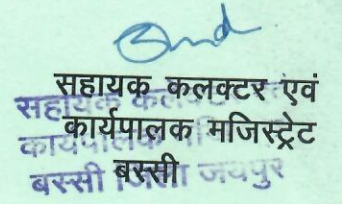 सहायक कलक्टर एवं
कार्यपालक मजिस्ट्रेट
बस्सी
सहायक कलक्टर
कार्यपालक
बस्सी जिला जयपुर